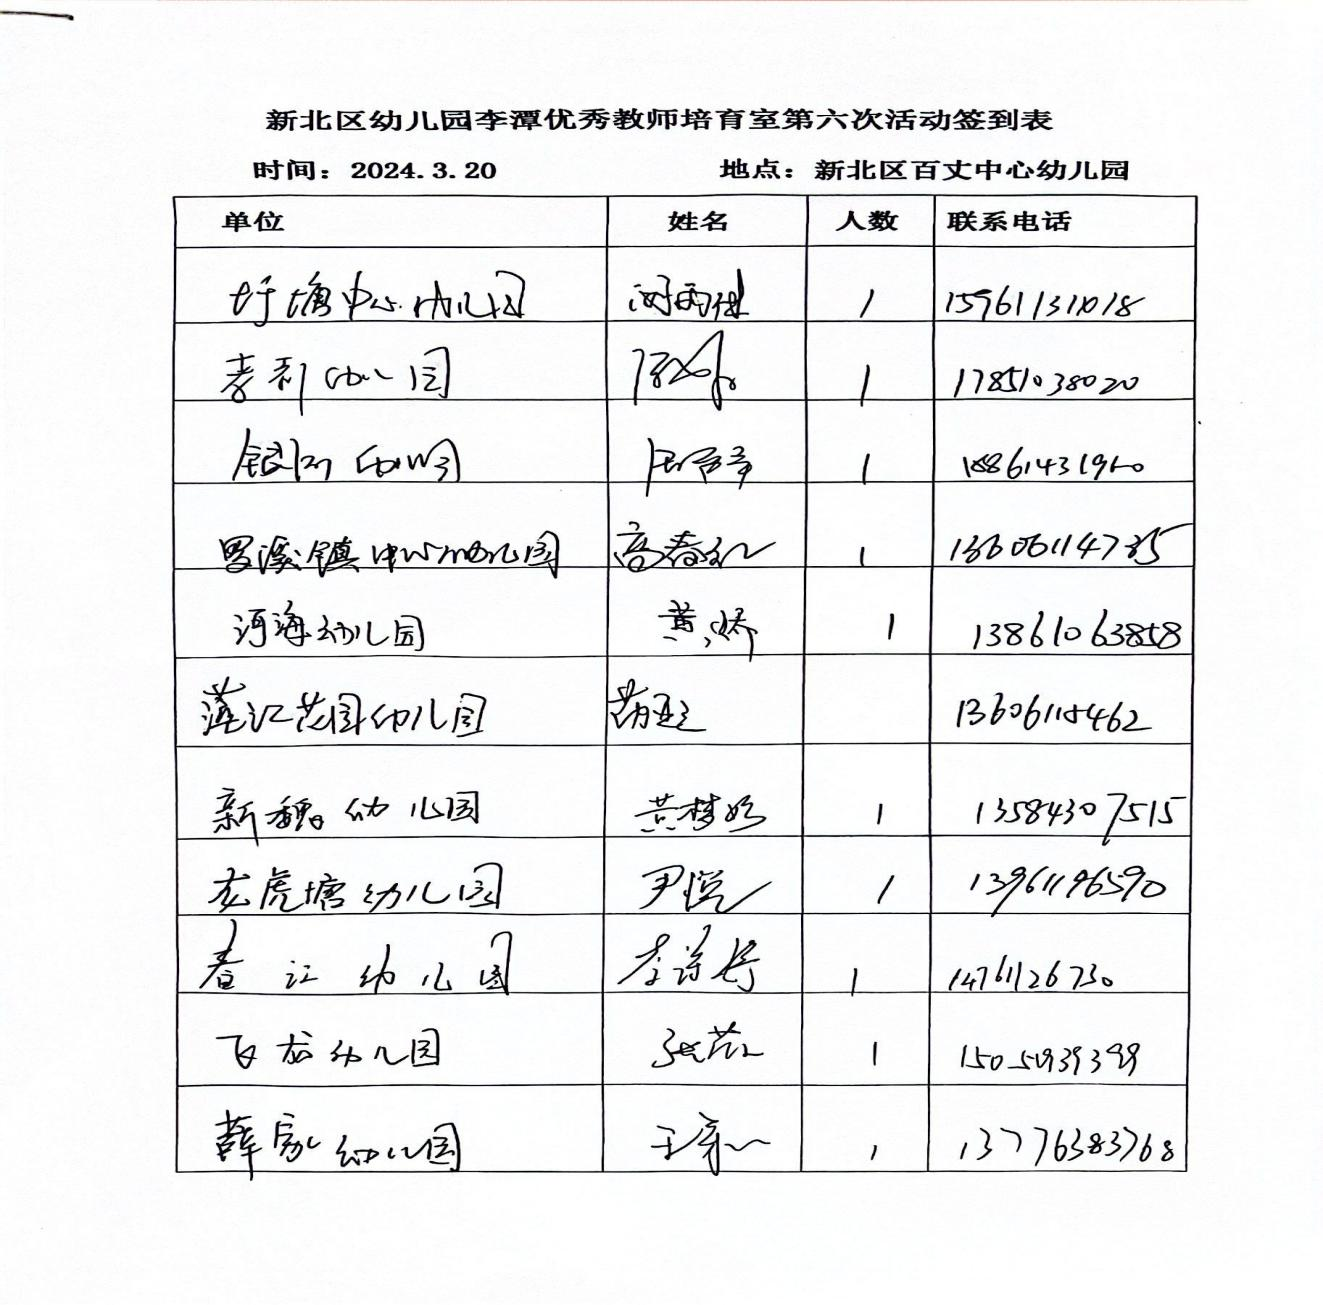 新北区幼儿园李潭优秀教师培育室第六次活动签到表
时间：2024.3.20 地点：新北区百丈中心幼儿园
单位 姓名 人数 联系电话
圩塘中心幼儿园 1 15961131018
孝都幼儿园 1 17851038020
银河幼儿园 1
罗溪镇中心幼儿园 高春红 1 13606114735
河海幼儿园 黄娇 1 13861063858
滨江花园幼儿园 13606115462
新魏幼儿园 黄梦姣 1 13584307515
龙虎塘幼儿园 尹悦 1 13961196590
春江幼儿园 李诗梦 1 14761126730
飞龙幼儿园 张芷 1
薛家幼儿园 1 13776383768